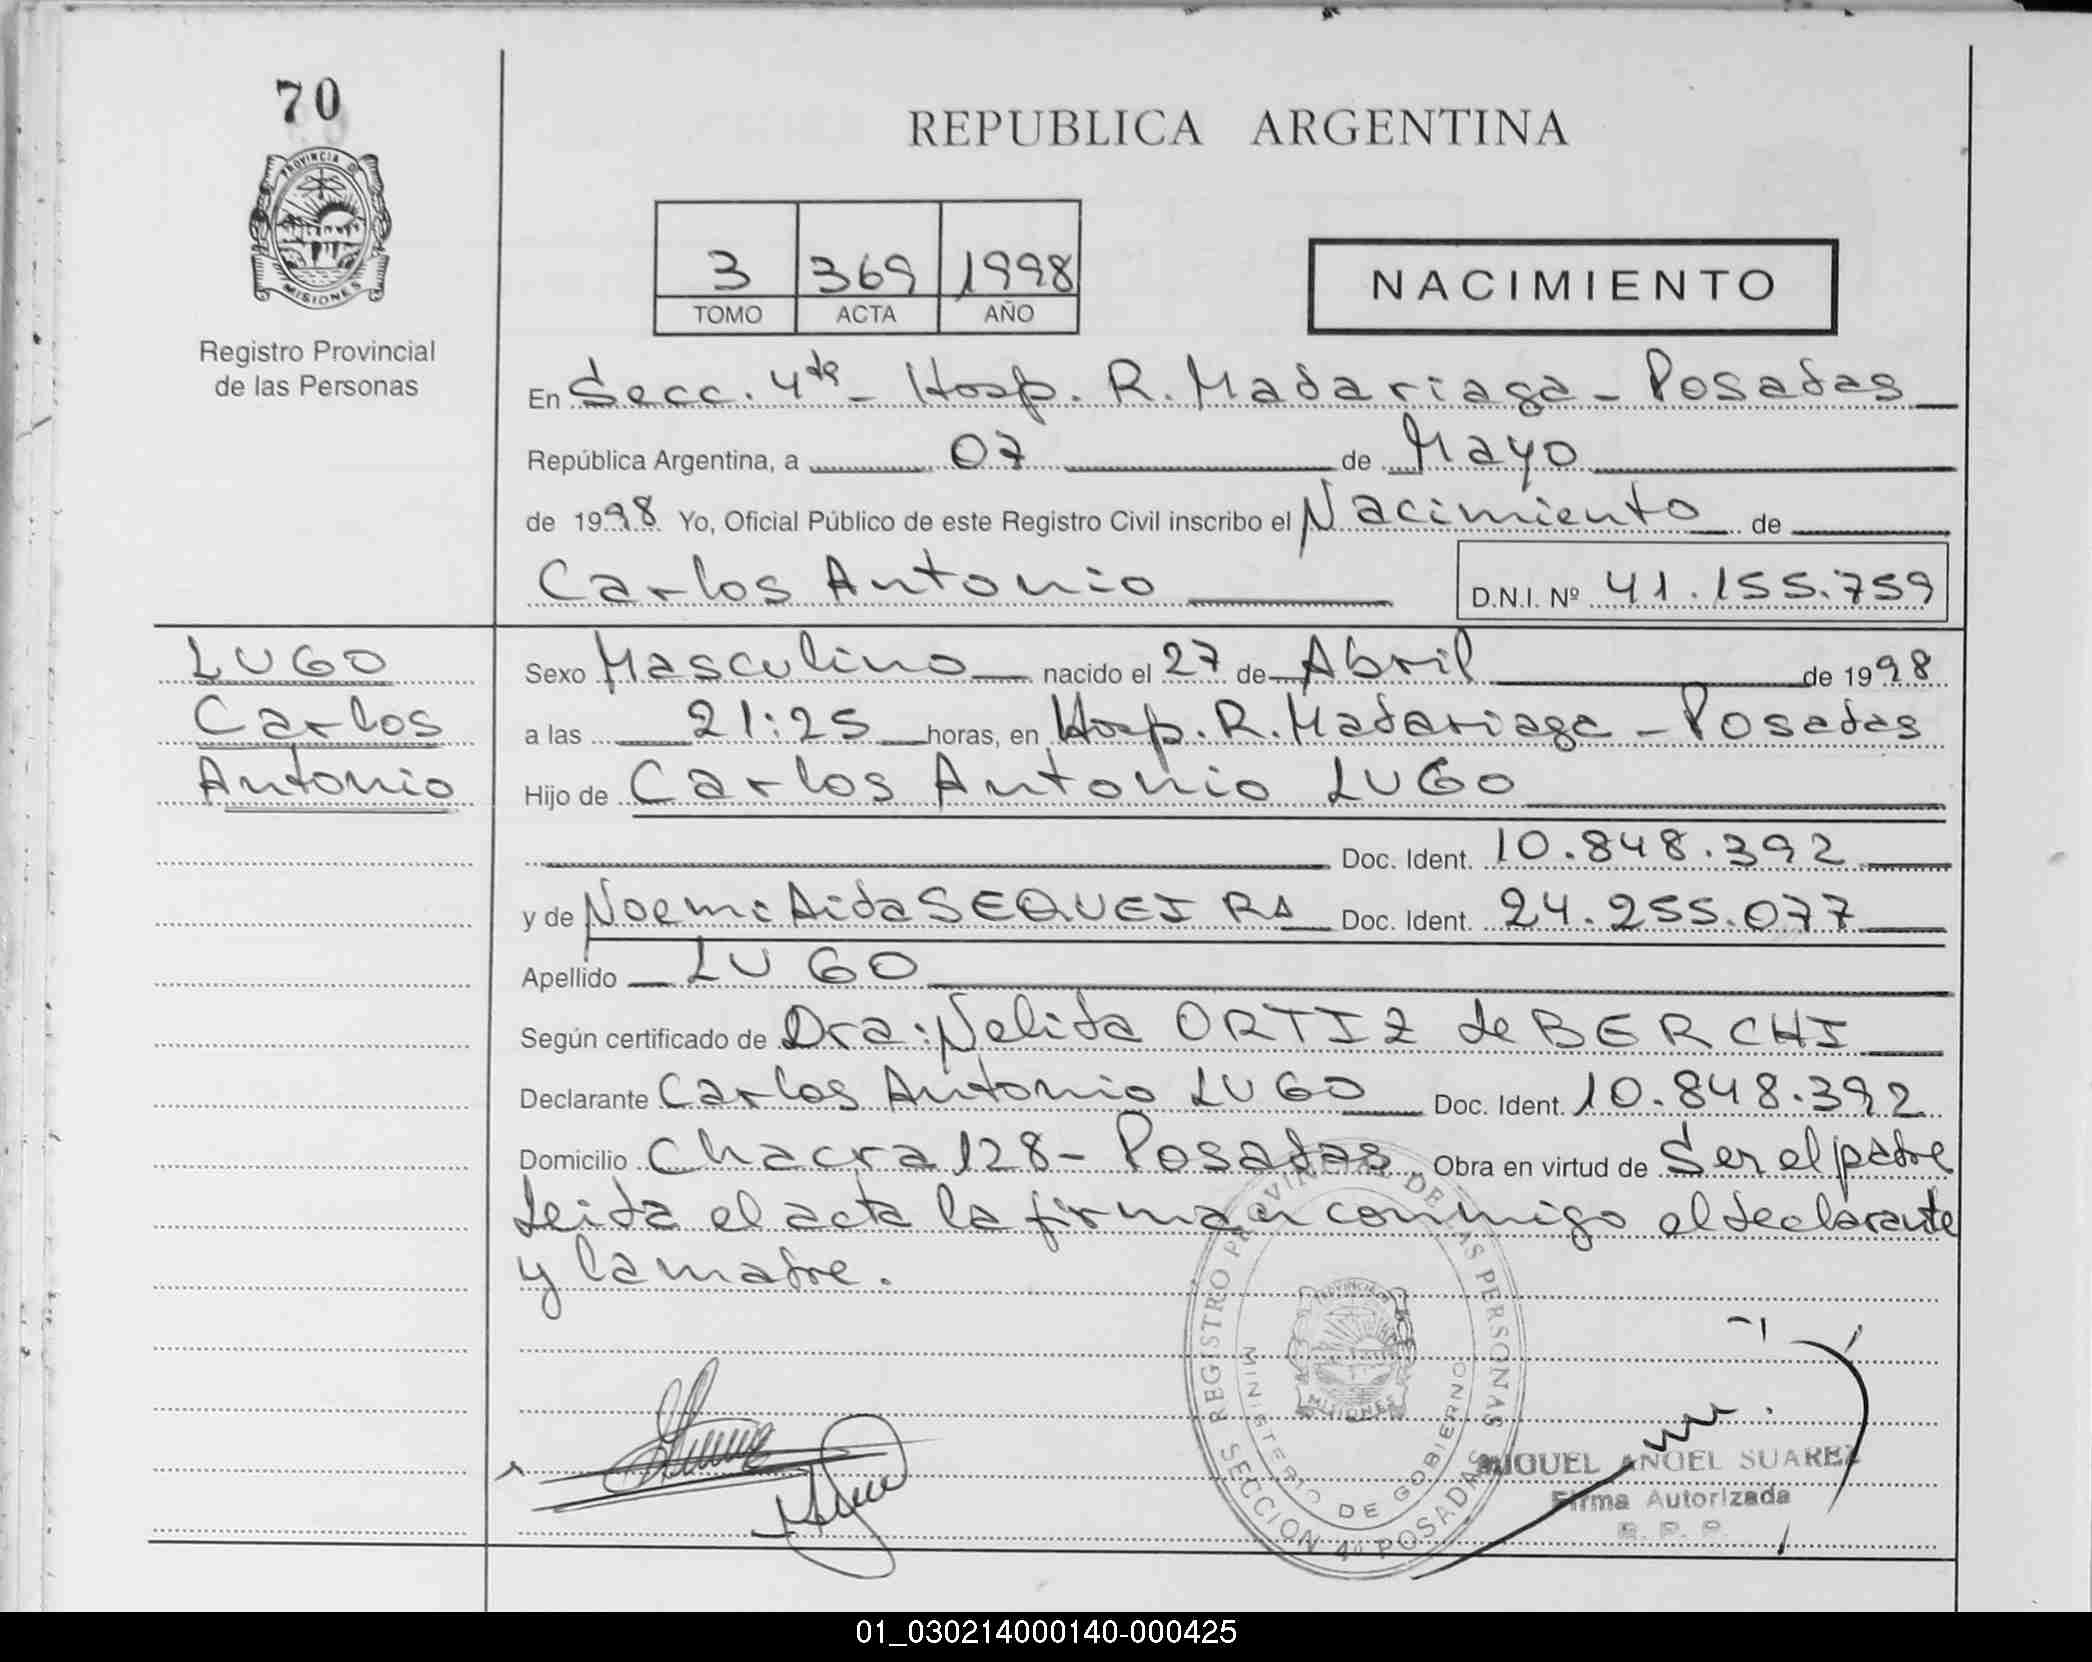 70
REPUBLICA ARGENTINA
PROVINCIA DE
MISIONES
Registro Provincial
de las Personas
3 369 1998
TOMO ACTA AÑO
NACIMIENTO
En Secc. 4ta - Hosp. R. Madariaga - Posadas
República Argentina, a 07 de Mayo
de 1998 Yo, Oficial Público de este Registro Civil inscribo el Nacimiento de
Carlos Antonio D.N.I. Nº 41.155.759
LUGO
Carlos
Antonio
Sexo Masculino nacido el 27 de Abril de 1998
a las 21:25 horas, en Hosp. R. Madariaga - Posadas
Hijo de Carlos Antonio LUGO
Doc. Ident. 10.848.392
y de Noemi Aida SEQUEIRA Doc. Ident. 24.255.077
Apellido LUGO
Según certificado de Dra: Nelida ORTIZ de BERCHI
Declarante Carlos Antonio LUGO Doc. Ident. 10.848.392
Domicilio Chacra 128 - Posadas Obra en virtud de Ser el padre
Leida el acta la firman conmigo el declarante
y la madre.
REGISTRO PROVINCIAL DE LAS PERSONAS
MINISTERIO DE GOBIERNO
SECCION 4º POSADAS
MISIONES
MIGUEL ANGEL SUAREZ
Firma Autorizada
01_030214000140-000425